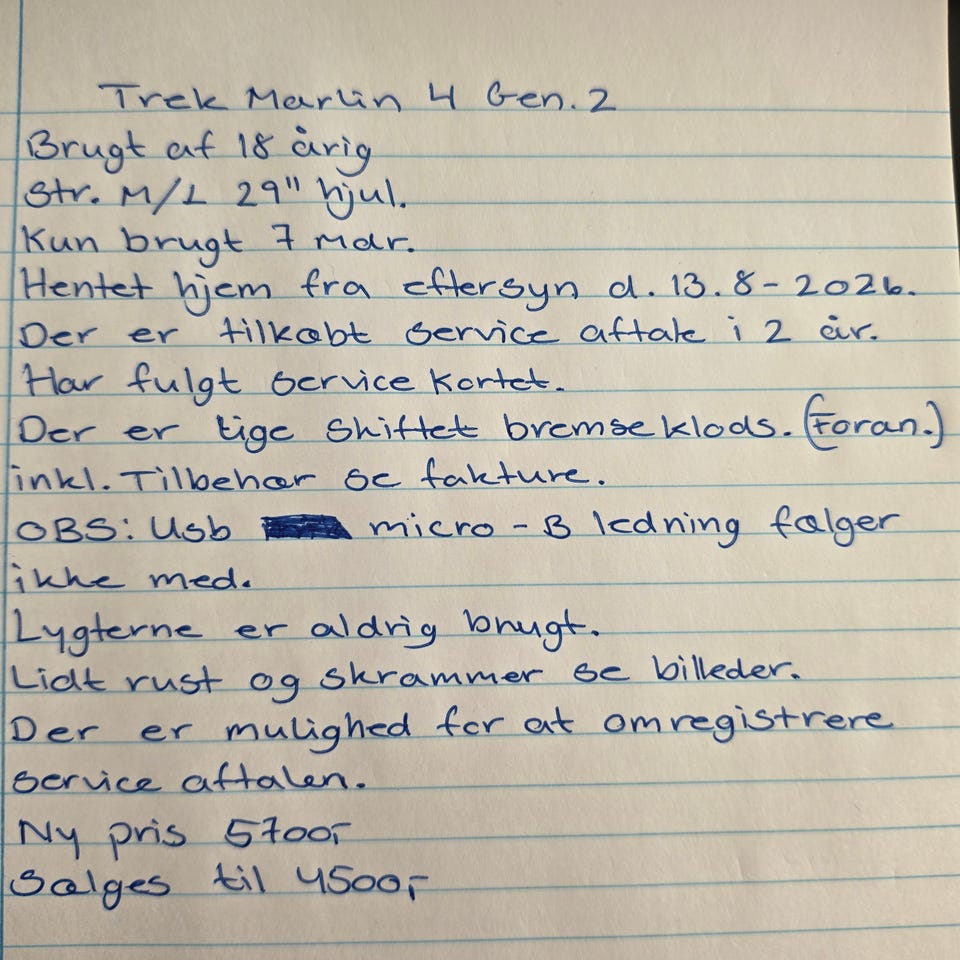 Trek Marlin 4 Gen. 2
Brugt af 18 årig
Str. M/L 29" hjul.
Kun brugt 7 mdr.
Hentet hjem fra eftersyn d. 13.8-2026.
Der er tilkøbt service aftale i 2 år.
Har fulgt service kortet.
Der er lige skiftet bremseklods. (Foran.)
inkl. Tilbehør se fakture.
OBS: Usb micro-B ledning følger
ikke med.
Lygterne er aldrig brugt.
Lidt rust og skrammer se billeder.
Der er mulighed for at omregistrere
service aftalen.
Ny pris 5700,-
Sælges til 4500,-